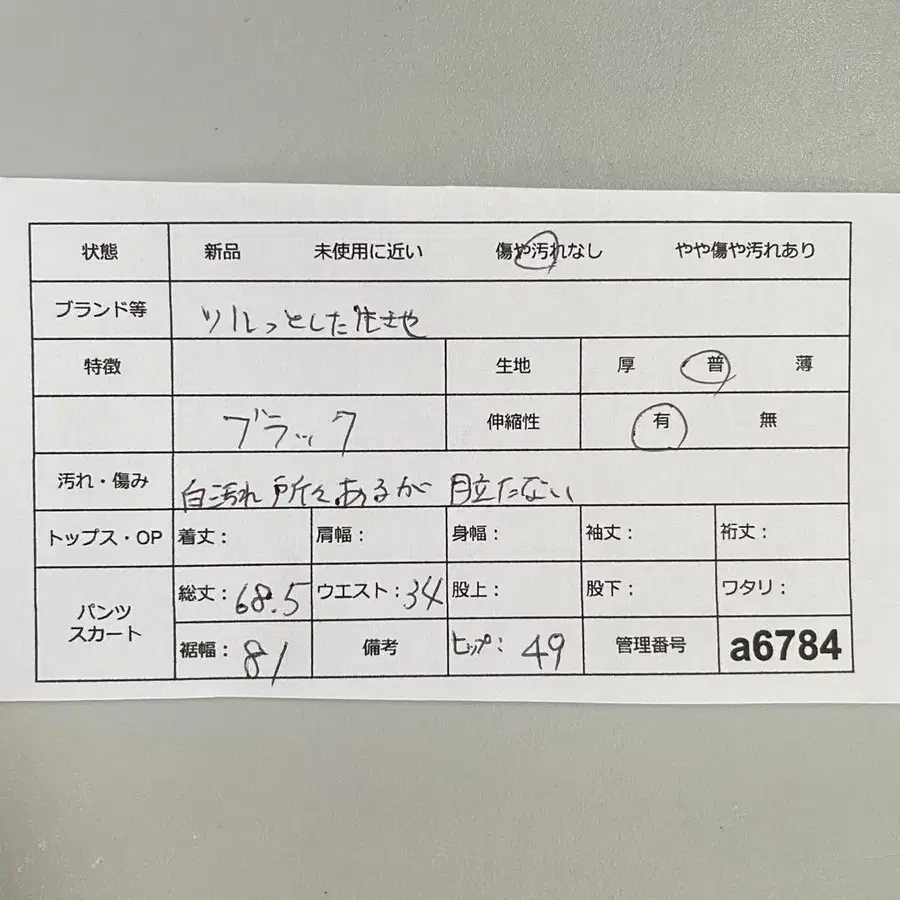 状態 新品 未使用に近い 傷や汚れなし やや傷や汚れあり
ブランド等 ツルっとした生地
特徴 生地 厚 普 薄
ブラック 伸縮性 有 無
汚れ・傷み 白汚れ所々あるが目立たない
トップス・OP 着丈： 肩幅： 身幅： 袖丈： 裄丈：
パンツ スカート 総丈：68.5 ウエスト：34 股上： 股下： ワタリ：
裾幅：81 備考 ヒップ：49 管理番号 a6784